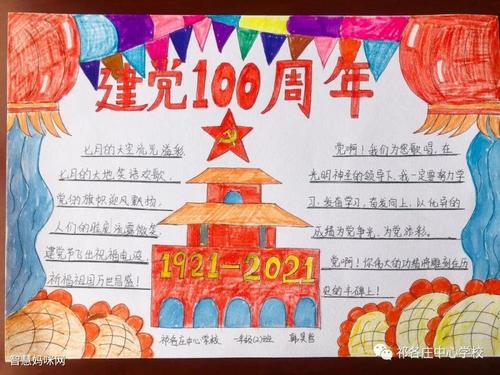 建党100周年
七月的天空流光溢彩,
七月的大地笑语欢歌,
党的旗帜迎风飘扬,
人们的脸庞流露微笑,
建党节飞出祝福电波
祈福祖国万世昌盛!
党啊!我们为您歌唱,在
光明神圣的领导下,我一定要努力学
习,发奋学习,奋发向上,以优异的
成绩为党争光,为党添彩。
党啊!你伟大的功绩将雕刻在历
史的丰碑上!
1921-2021
祁各庄中心学校 一年级(2)班
智慧妈咪网
祁各庄中心学校